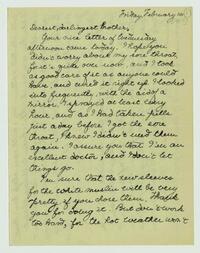 Friday, February
Dearest, darlingest Mother,
Your nice letter of Wednesday
afternoon came today. I hope you
didn't worry about my sore throat,
for it's quite over now, and I took
as good care of it as anyone could
have, and cured it right up. I looked
in it frequently, with the aid of a
mirror, & sprayed at least every
hour, and as I had taken pills
just a day before I got the sore
throat, I knew I didn't need them
again. I assure you that I'm an
excellent doctor, and I don't let
things go.
I'm sure that the new sleeves
for the white muslin will be very
pretty if you have them. Thank
you for doing it. But don't work
too hard, for the hot weather won't